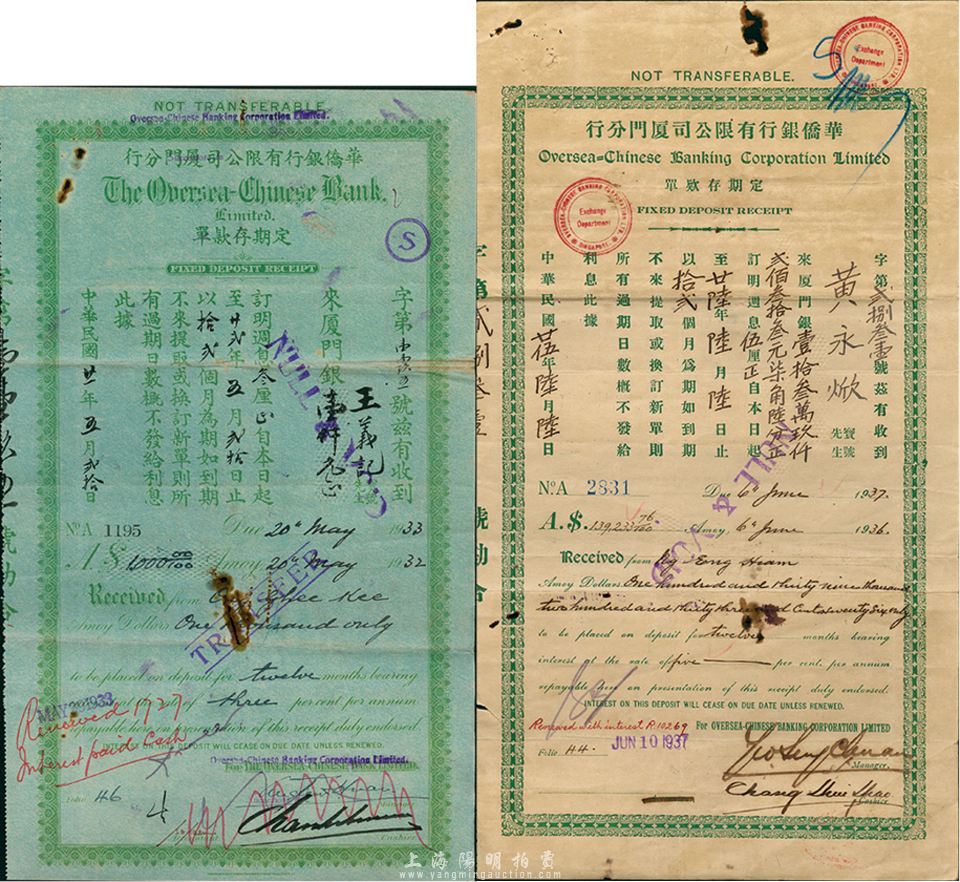 NOT TRANSFERABLE
Oversea-Chinese Banking Corporation Limited.
行分門厦司公限有行銀僑華
The Oversea-Chinese Bank
Limited.
單款存期定
FIXED DEPOSIT RECEIPT
S
字第 號茲有收到
王義記
來厦門銀壹仟元正
訂明週息叁厘正自本日起
至廿弍年五月弍拾日止
以拾弍個月為期如到期
不來提取或換訂新單則所
有過期日數概不發給利息
此據
中華民國廿一年五月弍拾日
NULL & VOID
No. A 1195 Due 20th May 1933
A. $ 1000 00/100 Amoy 20th May 1932
Received from Ghee Kee
Amoy Dollars One thousand only
TRANSFER
to be placed on deposit for twelve months bearing
MAY 1933
of three per cent per annum
of this receipt duly endorsed.
INTEREST ON THIS DEPOSIT WILL CEASE ON DUE DATE UNLESS RENEWED.
Renewed 1927
Interest paid Cash
Oversea-Chinese Banking Corporation Limited.
For THE OVERSEA-CHINESE BANK LIMITED.
Folio 46
Cashier
NOT TRANSFERABLE.
OVERSEA-CHINESE BANKING CORPORATION LTD.
Exchange
Department
SINGAPORE
行分門厦司公限有行銀僑華
Oversea-Chinese Banking Corporation Limited
單欵存期定
FIXED DEPOSIT RECEIPT
OVERSEA-CHINESE BANKING CORPORATION LTD.
Exchange
Department
SINGAPORE
字第弍捌叁壹號茲有收到
黃永焮
寶號
先生
來厦門銀壹拾叁萬玖仟
弍佰叁拾叁元柒角陸分正
訂明週息伍厘正自本日起
至廿陸年陸月陸日止
以拾弍個月為期如到期
不來提取或換訂新單則
所有過期日數概不發給
利息此據
中華民國廿伍年陸月陸日
NULL & VOID
No. A 2831 Due 6th June 1937.
A. $. 139,233 76/100 Amoy, 6th June 1936.
Received from Ng Eng Hiam
Amoy Dollars One hundred and thirty nine thousand
two hundred and thirty three and Cents seventy six only
to be placed on deposit for twelve months bearing
interest at the rate of five per cent. per annum
repayable here on presentation of this receipt duly endorsed.
INTEREST ON THIS DEPOSIT WILL CEASE ON DUE DATE UNLESS RENEWED.
Renewed with interest R.10269
For OVERSEA-CHINESE BANKING CORPORATION LIMITED
Folio 44.
JUN 10 1937
Manager.
Cashier
上海陽明拍賣
www.yangmingauction.com